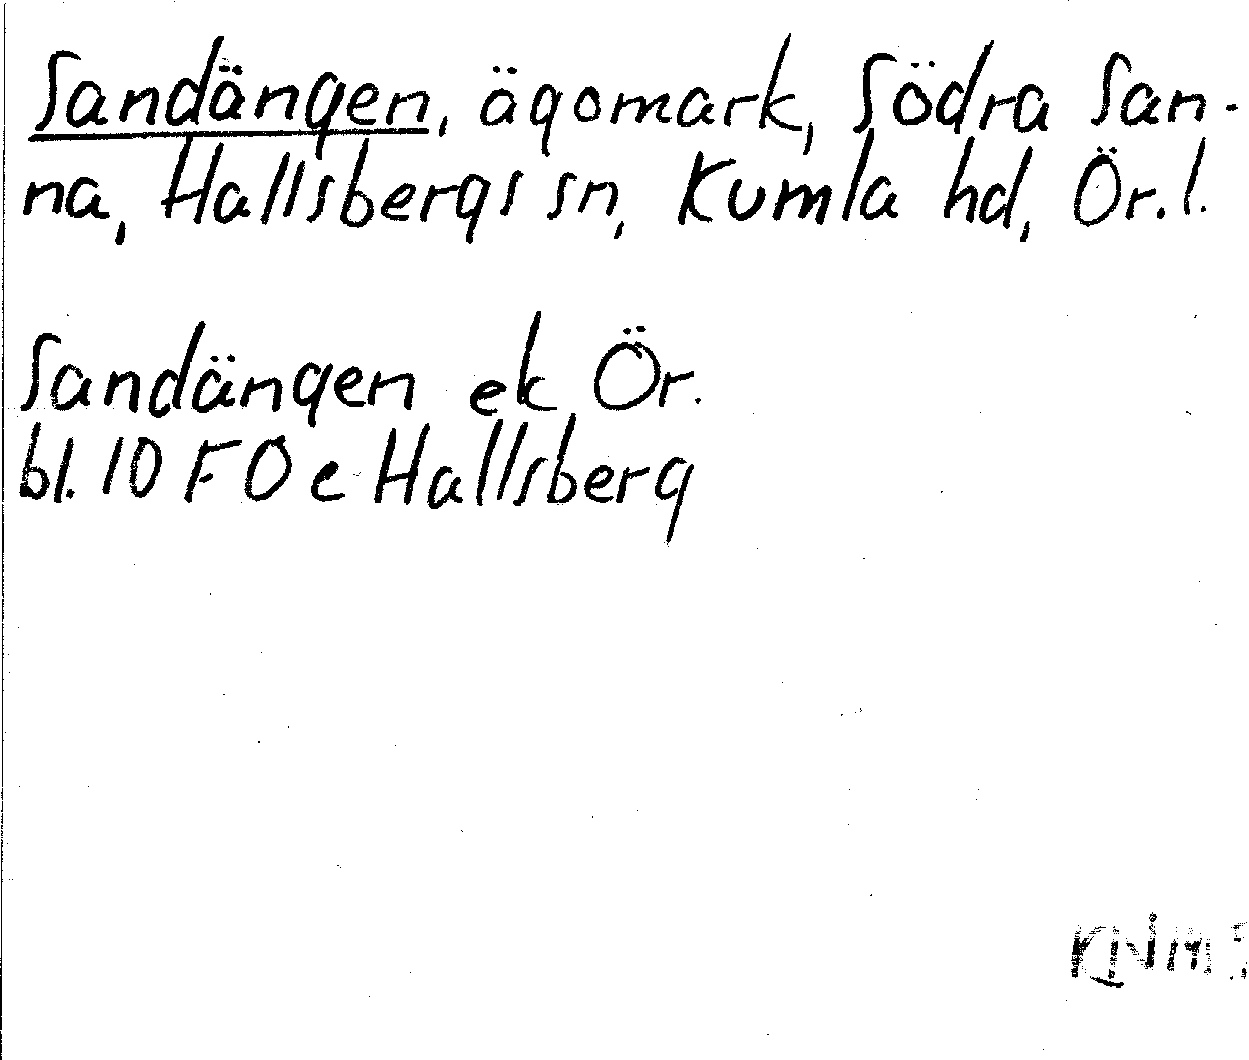 Sandängen, ägomark, Södra San-
na, Hallsbergs sn, Kumla hd, Ör. l.
Sandängen ek Ör.
bl. 10 F 0 e Hallsberg